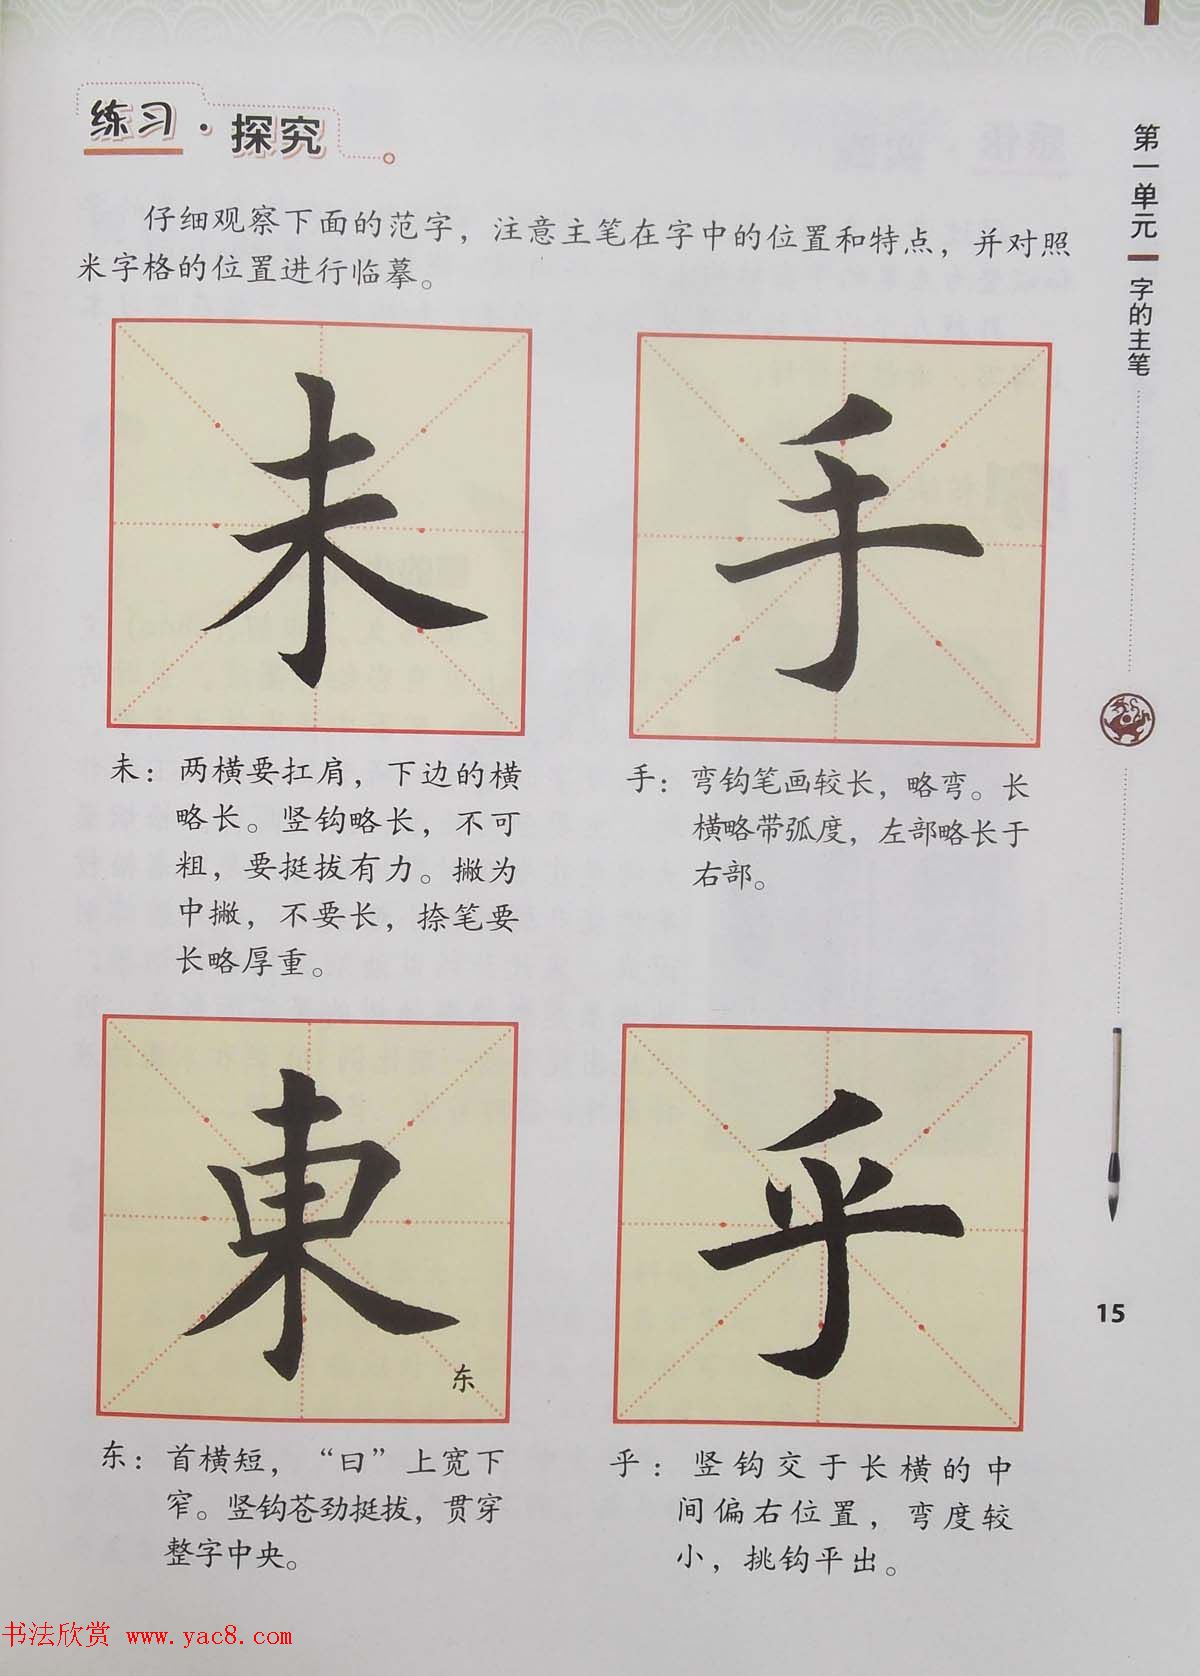 练习·探究
仔细观察下面的范字，注意主笔在字中的位置和特点，并对照
米字格的位置进行临摹。
未
手
未：两横要扛肩，下边的横
略长。竖钩略长，不可
粗，要挺拔有力。撇为
中撇，不要长，捺笔要
长略厚重。
手：弯钩笔画较长，略弯。长
横略带弧度，左部略长于
右部。
東
东
乎
东：首横短，“曰”上宽下
窄。竖钩苍劲挺拔，贯穿
整字中央。
乎：竖钩交于长横的中
间偏右位置，弯度较
小，挑钩平出。
第一单元
字的主笔
15
书法欣赏 www.yac8.com